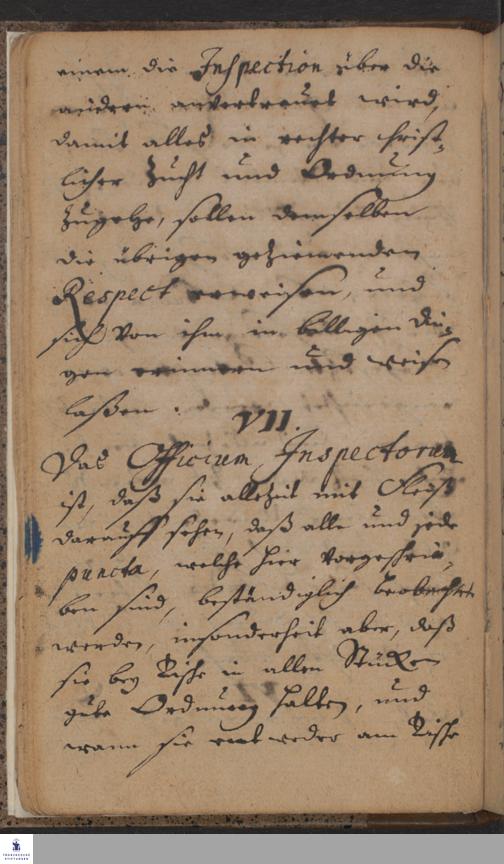 einem die Inspection über die
andern anvertrauet wird,
damit alles in rechter christ-
licher Zucht und Ordnung
zugehe, sollen demselben
die übrigen geziemenden
Respect erweisen, und
sich von ihm in billigen Din-
gen erinnern und weisen
laßen.
VII.
Das Officium Inspectorum
ist, daß sie allezeit mit Fleiß
darauff sehen, daß alle und jede
puncta, welche hier vorgeschrie-
ben sind, beständiglich beobachtet
werden, insonderheit aber, daß
sie bey Tische in allen Stücken
gute Ordnung halten, und
wann sie entweder am Tische
FRANCKESCHE
STIFTUNGEN